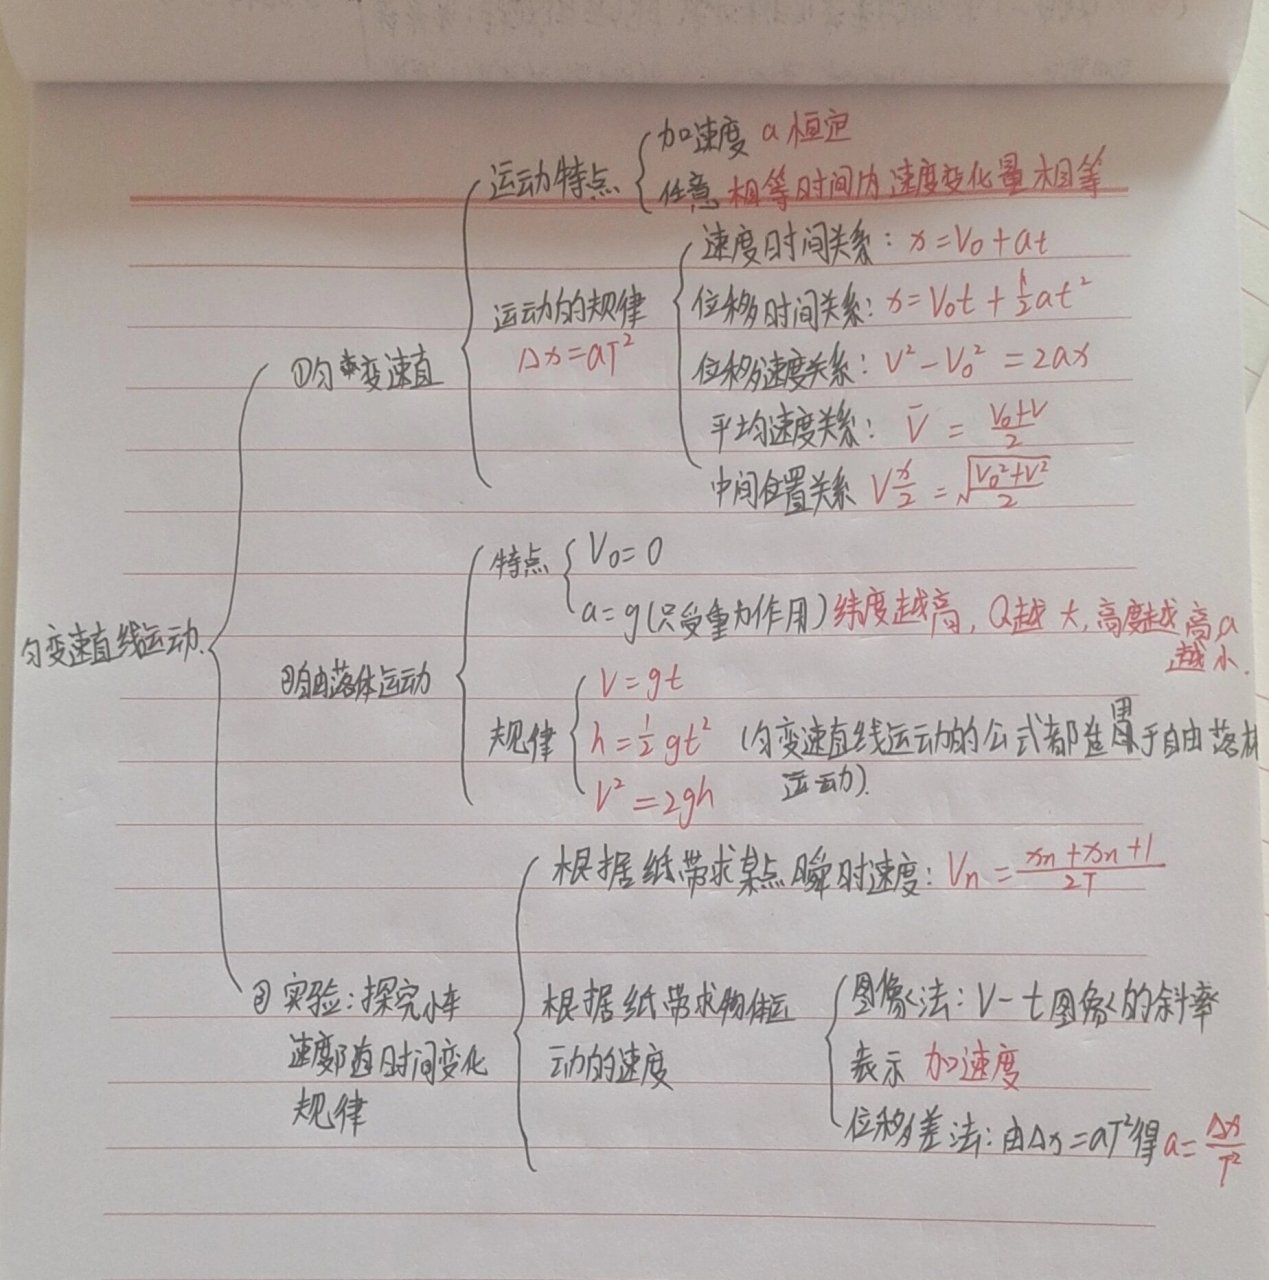 匀变速直线运动.
①匀变速直
运动特点
加速度 a 恒定
任意 相等时间内速度变化量相等
运动的规律
Δx=aT²
速度时间关系: x=V₀+at
位移时间关系: x=V₀t+½at²
位移速度关系: V²-V₀²=2ax
平均速度关系: V̄ = (V₀+V)/2
中间位置关系 V x/2 = √((V₀²+V²)/2)
②自由落体运动
特点
V₀=0
a=g(只受重力作用) 纬度越高, a越大, 高度越高a
越小.
规律
V=gt
h=½gt² (匀变速直线运动的公式都适用于自由落体
运动).
V²=2gh
③ 实验:探究小车
速度随时间变化
规律
根据纸带求某点瞬时速度: Vn = (xn+xn+1)/2T
根据纸带求物体运
动的速度
图像法: V-t图像的斜率
表示 加速度
位移差法: 由Δx=aT²得 a=Δx/T²